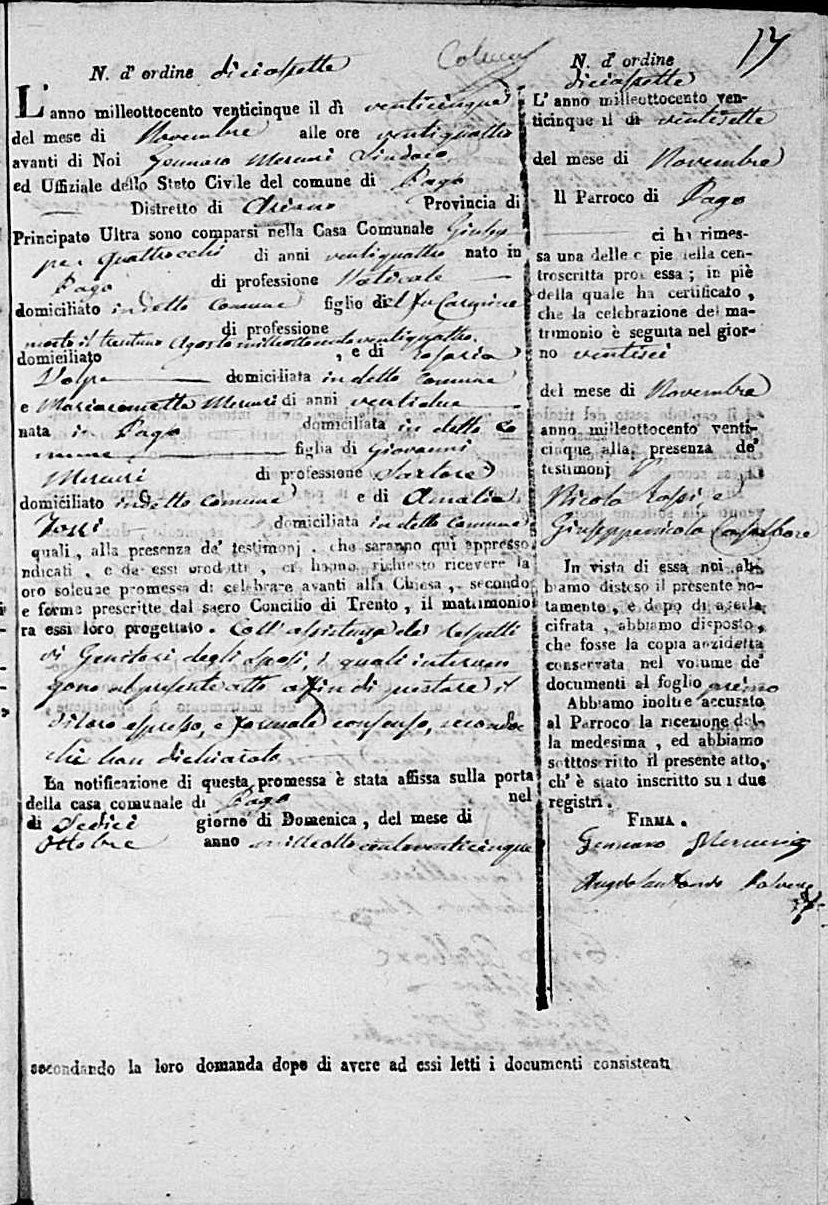 17
N. d' ordine diciassette
L' anno milleottocento venticinque il dì venticinque
del mese di Novembre alle ore ventiquattro
avanti di Noi Gennaro Mercuri Sindaco
ed Uffiziale dello Stato Civile del comune di Pago
Distretto di Ariano Provincia di
Principato Ultra sono comparsi nella Casa Comunale Giusep
pe Quattrocchi di anni ventiquattro nato in
Pago di professione Vaticale
domiciliato in detto Comune figlio del fu Carmine
di professione
morto il trentuno Agosto milleottocentoventiquattro.
domiciliato , e di Rosaria
Volpe domiciliata in detto Comune
e Mariacometta Mercuri di anni ventidue
nata in Pago domiciliata in detto Co
mune figlia di Giovanni
Mercuri di professione Sartore
domiciliato in detto Comune e di Amalia
domiciliata in detto Comune
quali , alla presenza de' testimonj , che saranno qui appresso
ndicati , e da essi prodotti , ci hanno richiesto ricevere la
oro solenne promessa di celebrare avanti alla Chiesa , secondo
e forme prescritte dal sacro Concilio di Trento , il matrimonio
ra essi loro progettato . Coll' assistenza dei rispetti
vi Genitori degli sposi, i quali interven
gono al presente atto affin di prestare il
di loro espresso, e formale consenso, secondo
che han dichiarato
La notificazione di questa promessa è stata affissa sulla porta
della casa comunale di Pago nel
di Sedici giorno di Domenica , del mese di
Ottobre anno milleottocentoventicinque
N. d' ordine
diciassette
L' anno milleottocento ven-
ticinque il dì ventisette
del mese di Novembre
Il Parroco di Pago
ci ha rimes-
sa una delle copie della con-
troscritta promessa ; in piè
della quale ha certificato ,
che la celebrazione del ma-
trimonio è seguita nel gior-
no ventisei
del mese di Novembre
anno milleottocento venti-
cinque alla presenza de'
testimonj
Nicola Rossi e
Giuseppenicola Casalbore
In vista di essa noi ab-
biamo disteso il presente no-
tamento , e dopo di averla
cifrata , abbiamo disposto ,
che fosse la copia anzidetta
conservata nel volume de'
documenti al foglio primo
Abbiamo inoltre accusato
al Parroco la ricezione del-
la medesima , ed abbiamo
sotttoscritto il presente atto,
ch' è stato inscritto su i due
registri .
FIRMA .
Gennaro Mercuri
Angelantonio
secondando la loro domanda dopo di avere ad essi letti i documenti consistenti